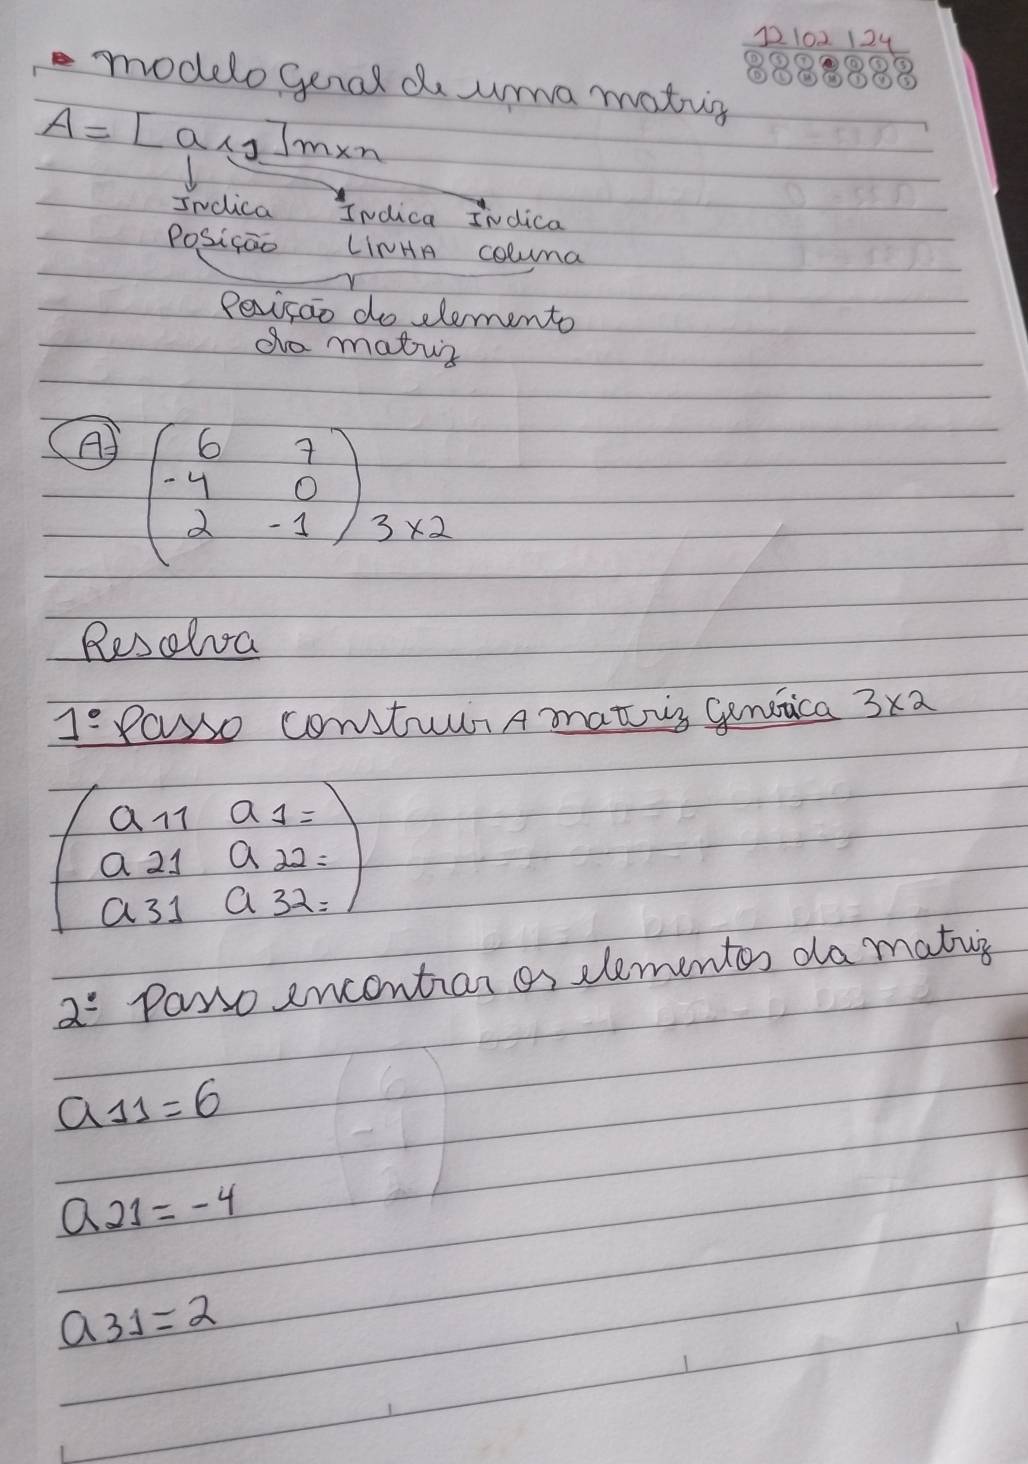 12/02/24
modelo geral de uma matriz
A = [aij]mxn
Indica Indica Indica
Posição LINHA coluna
Posição do elemento
da matriz
A= 6 7
-4 0
2 -1 3x2
Resolva
1º Passo construir A matriz genérica 3x2
a11 a1=
a21 a22=
a31 a32=
2º Passo encontrar os elementos da matriz
a11=6
a21=-4
a31=2